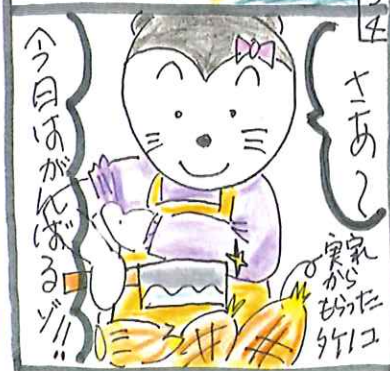 さあ〜
実家
から
もらった
タケノコ
今日はがんばるゾ!!